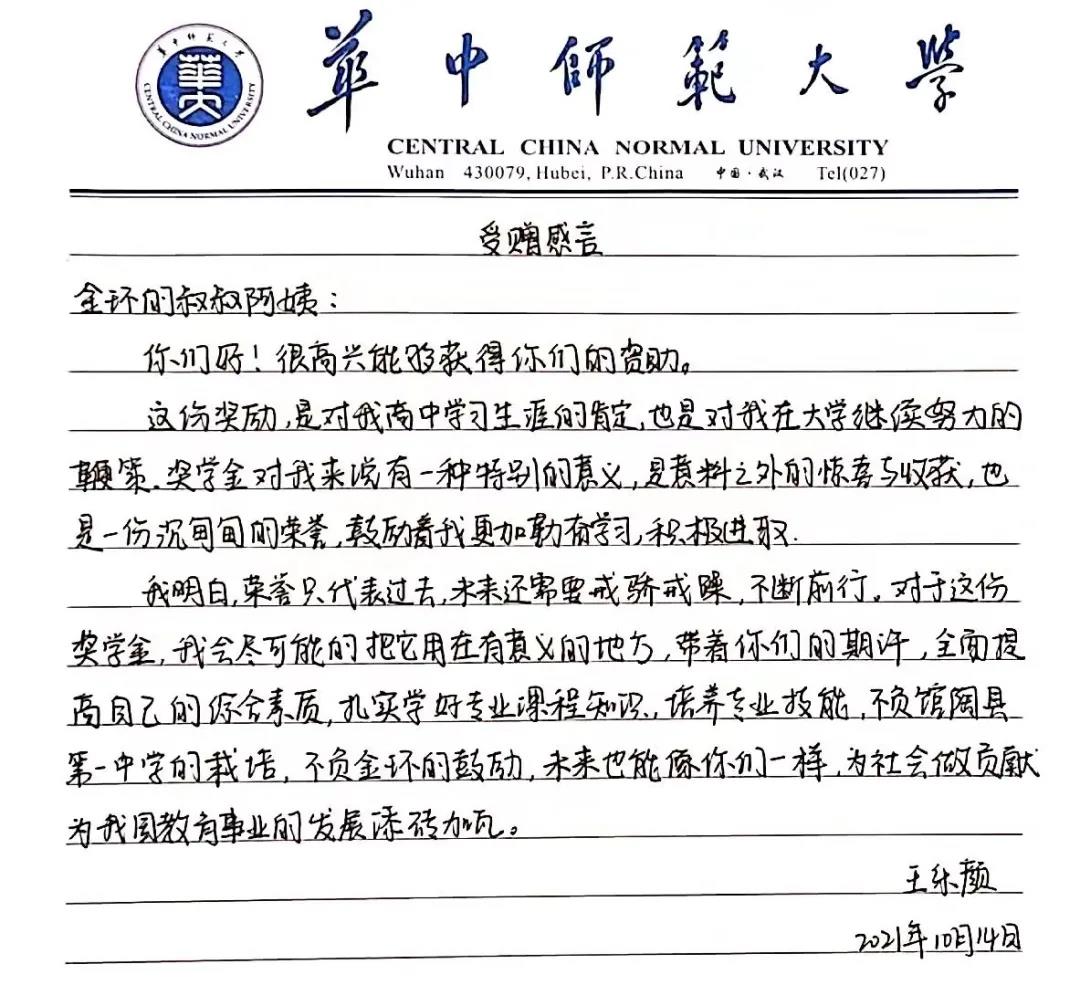 華中師範大學
華中師範大学
CENTRAL CHINA NORMAL UNIVERSITY
CENTRAL CHINA NORMAL UNIVERSITY
Wuhan 430079, Hubei, P.R.China 中国·武汉 Tel(027)
受赠感言
金环的叔叔阿姨：
你们好！很高兴能够获得你们的资助。
这份奖励，是对我高中学习生涯的肯定，也是对我在大学继续努力的
鞭策。奖学金对我来说有一种特别的意义，是意料之外的惊喜与收获，也
是一份沉甸甸的荣誉，鼓励着我更加勤奋学习，积极进取.
我明白，荣誉只代表过去，未来还需要戒骄戒躁，不断前行。对于这份
奖学金，我会尽可能的把它用在有意义的地方，带着你们的期许，全面提
高自己的综合素质，扎实学好专业课程知识，培养专业技能，不负馆陶县
第一中学的栽培，不负金环的鼓励，未来也能像你们一样，为社会做贡献
为我国教育事业的发展添砖加瓦。
王乐颜
2021年10月14日